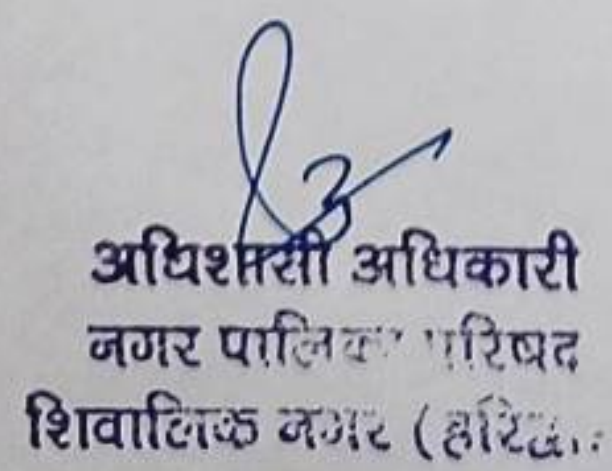 अधिशासी अधिकारी
नगर पालिका परिषद
शिवालिक नगर (हरिद्वार